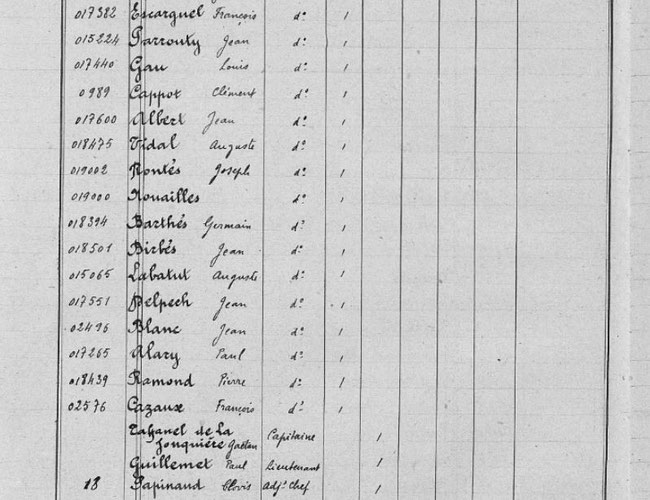 017382 Escarguel François do 1
015224 Parrouty Jean do 1
017440 Gau Louis do 1
0989 Cappot Clément do 1
017600 Albert Jean do 1
018475 Vidal Auguste do 1
019002 Rontés Joseph do 1
019000 Nouailles do 1
018394 Barthés Germain do 1
018501 Birbés Jean do 1
015065 Labatut Auguste do 1
017551 Delpech Jean do 1
02496 Blanc Jean do 1
017265 Alary Paul do 1
018439 Ramond Pierre do 1
02576 Cazaux François do 1
Taffanel de La
Jonquière Gaëtan Capitaine 1
Guillemet Paul Lieutenant 1
18 Papinaud Clovis Adjt Chef 1